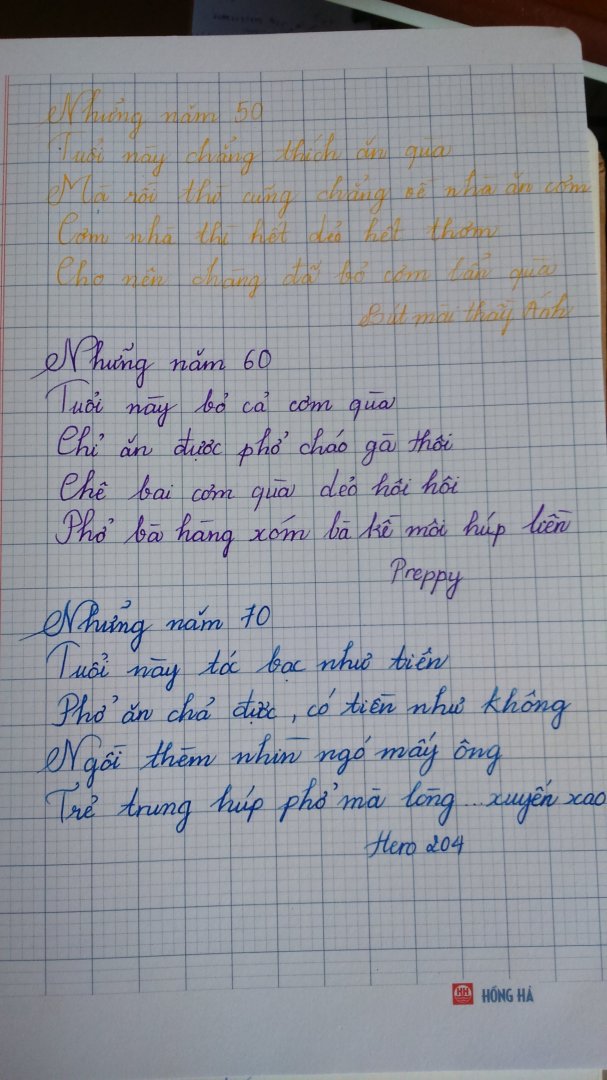 Những năm 50
Tuổi này chẳng thích ăn quà
Mà rồi thì cũng chẳng về nhà ăn cơm
Cơm nhà thì hết dẻo hết thơm
Cho nên chàng đã bỏ cơm lẫn quà
Bút mài thầy Ánh
Những năm 60
Tuổi này bỏ cả cơm quà
Chỉ ăn được phở cháo gà thôi
Chê bai cơm quà dẻo hôi hôi
Phở bà hàng xóm bà kề môi húp liền
Preppy
Những năm 70
Tuổi này tóc bạc như tiên
Phở ăn chả được, có tiền như không
Ngồi thèm nhìn ngó mấy ông
Trẻ trung húp phở mà lòng...xuyến xao
Hero 204
HH HỒNG HÀ